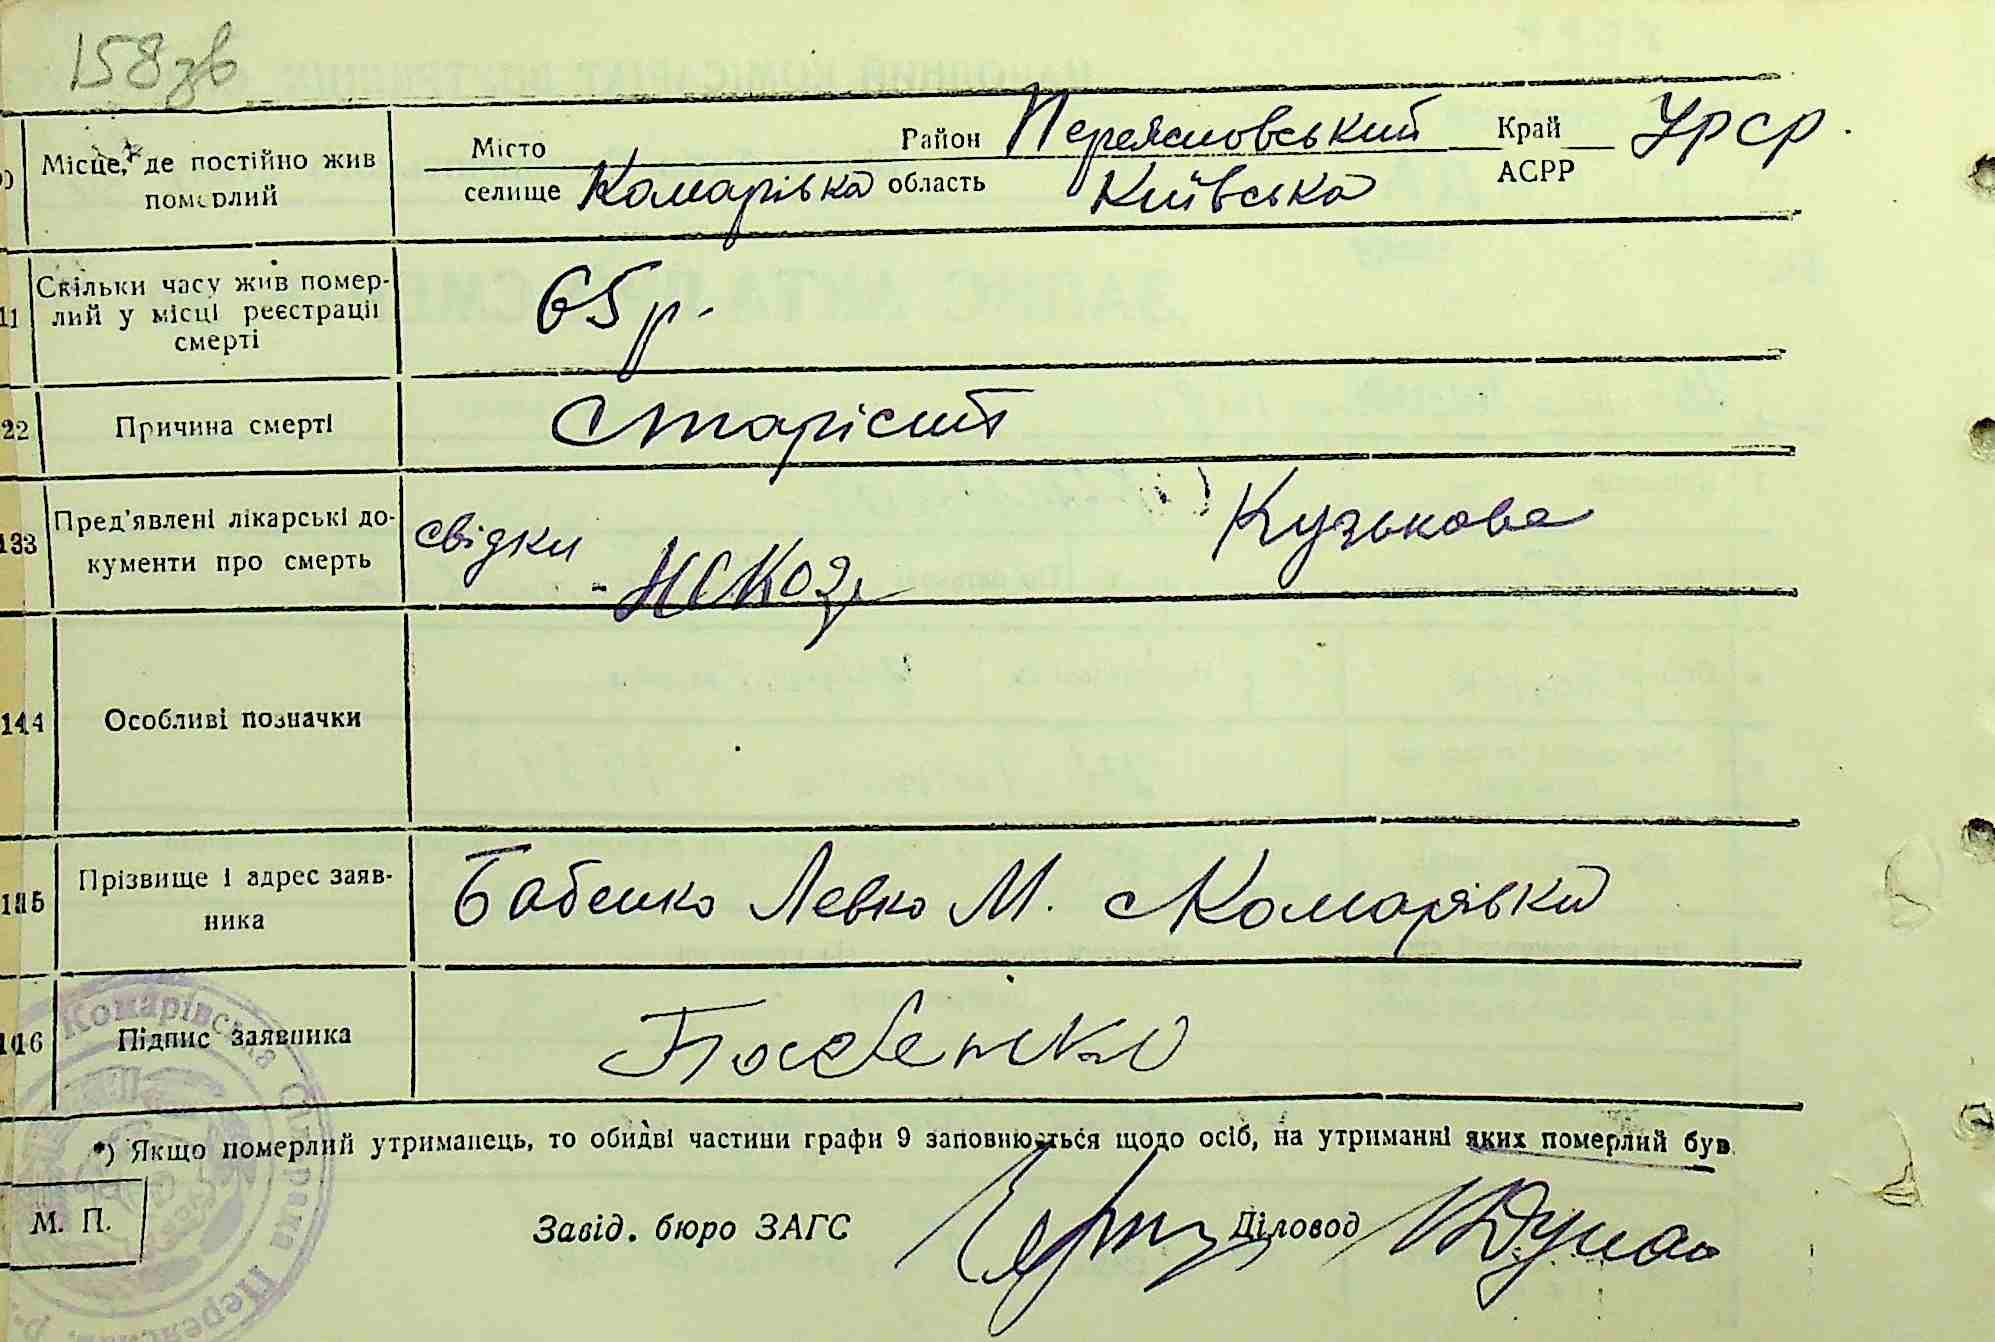 158зв
Місце, де постійно жив
померлий
Місто Район Переяславський Край УРСР.
селище Комарівка область Київська АСРР
11 Скільки часу жив помер-
лий у місці реєстрації
смерті
65 р.
22 Причина смерті
Старість
133 Пред'явлені лікарські до-
кументи про смерть
свідки Кузькова
144 Особливі позначки
Прізвище і адрес заяв-
ника
Бабенко Левко М. с Комарівка
Підпис заявника
Бабенко
*) Якщо померлий утриманець, то обидві частини графи 9 заповнюються щодо осіб, на утриманні яких померлий був
М. П.
Завід. бюро ЗАГС Діловод
Комарівська Сільрада Переяслав. р.